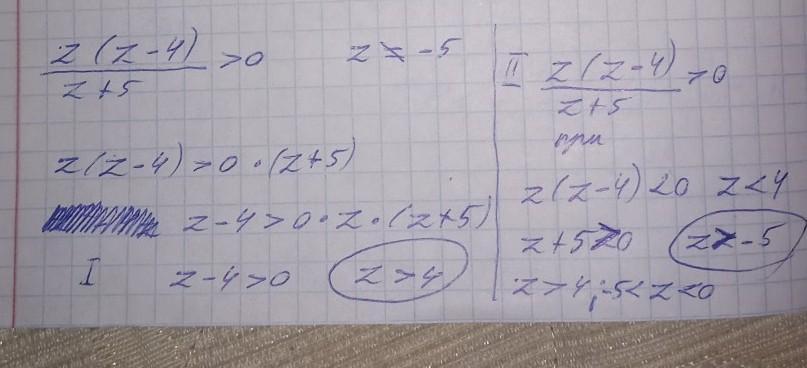 z(z-4)/z+5 >0 z ≠ -5
z(z-4)>0·(z+5)
z-4>0·z·(z+5)
I z-4>0 z>4
II z(z-4)/z+5 >0
при
z(z-4)<0 z<4
z+5>0 z>-5
z>4; -5<z<0